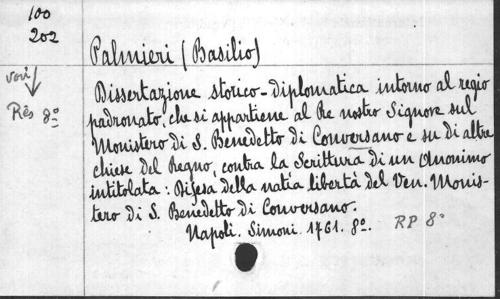 100
202
Palmieri (Basilio)
vari
Rês 8º
Dissertazione storico-diplomatica intorno al regio
padronato, che si appartiene al Re nostro Signore sul
Monistero di S. Benedetto di Conversano e su di altre
chiese del Regno, contra la Scrittura di un Anonimo
intitolata: Difesa della natìa libertà del Ven. Monis-
tero di S. Benedetto di Conversano.
Napoli. Simoni. 1761. 8º. RP 8º